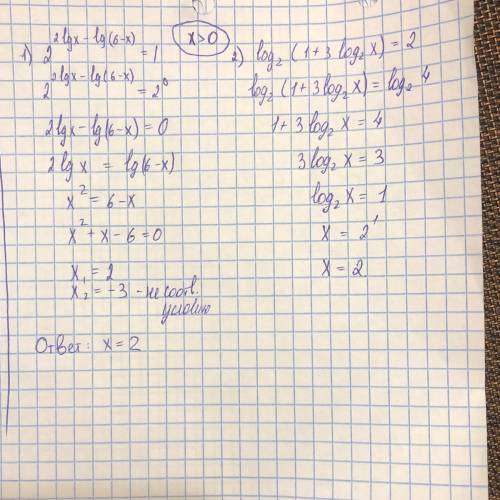 x>0
1) 2^(2lgx-lg(6-x)) = 1
2^(2lgx-lg(6-x)) = 2^0
2lgx-lg(6-x)=0
2lgx = lg(6-x)
x² = 6-x
x² + x - 6 = 0
x₁ = 2
x₂ = -3 - не соотв.
условию
Ответ: x = 2
2) log₂ (1+3 log₂x) = 2
log₂ (1+3log₂x) = log₂ 4
1+3log₂x = 4
3log₂x = 3
log₂x = 1
x = 2¹
x = 2.